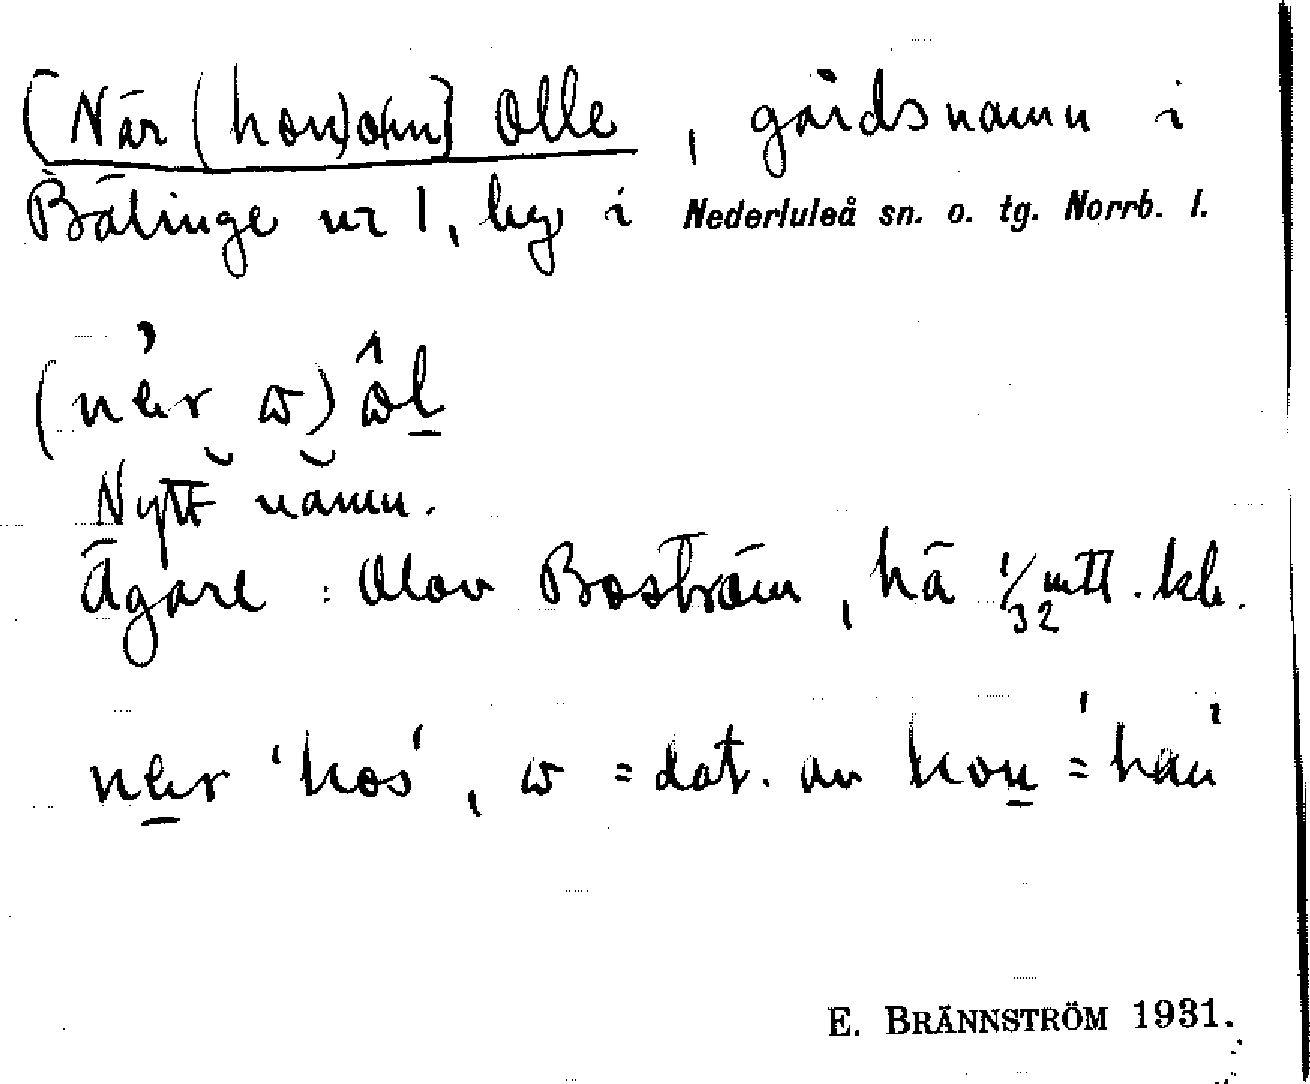 [När (hon)om] Olle, gårdsnamn i
Bälinge nr 1, by i Nederluleå sn. o. tg. Norrb. l.
Nytt namn.
Ägare: Olov Boström, hä 1/32 mtl. kr.
'hos', ω = dat. av hon = 'han'
E. BRÄNNSTRÖM 1931.